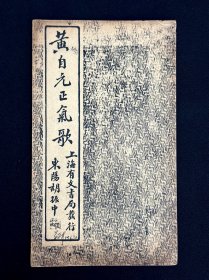 黄自元正氣歌
上海有文書局發行
東陽胡振中